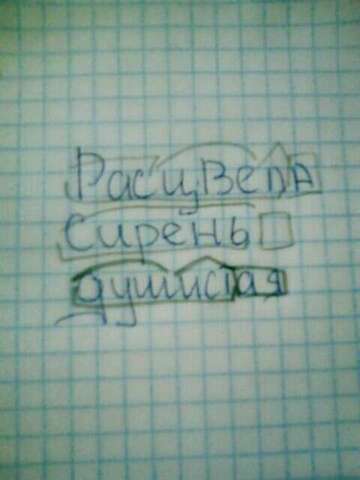 Расцвела
Сирень
душистая